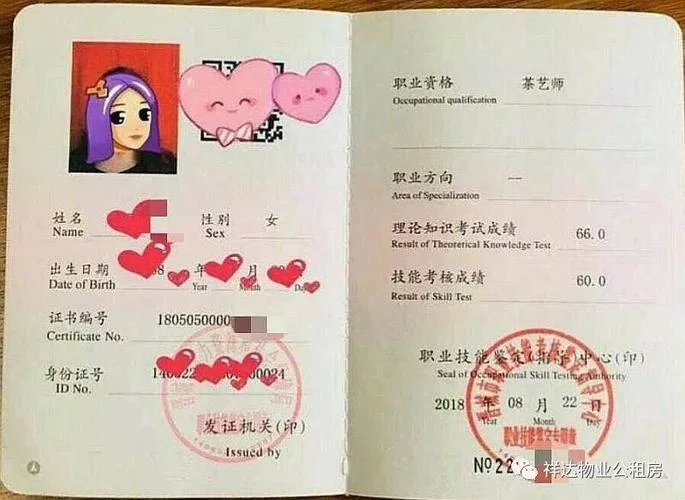 姓名
Name
性别 女
Sex
出生日期 年 月
Date of Birth Year Month Day
证书编号 180505000
Certificate No.
身份证号
ID No.
发证机关(印)
Issued by
职业资格 茶艺师
Occupational qualification
职业方向 一
Area of Specialization
理论知识考试成绩 66.0
Result of Theoretical Knowledge Test
技能考核成绩 60.0
Result of Skill Test
职业技能鉴定(指导)中心(印)
Seal of Occupational Skill Testing Authority
2018 年 08 月 22 日
Year Month Day
№22
祥达物业公租房